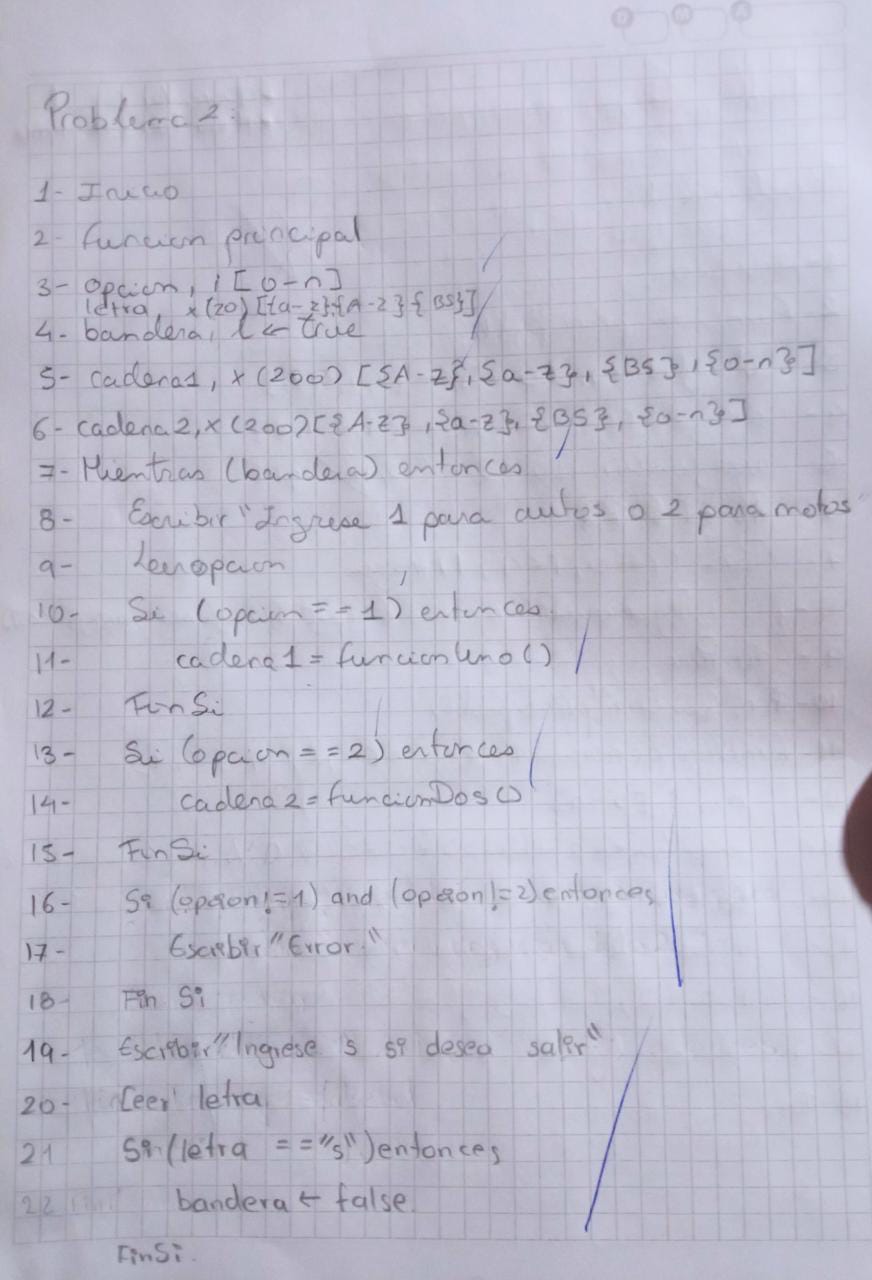 Problema 2:
1- Inicio
2- funcion principal
3- opcion, i [0-n]
letra, x(20) [{a-z}{A-Z}{BS}]
4- bandera, l ← true
5- cadena1, x (200) [{A-Z}, {a-z}, {BS}, {0-n}]
6- cadena 2, x (200) [{A-Z}, {a-z}, {BS}, {0-n}]
7- Mientras (bandera) entonces
8- Escribir "Ingrese 1 para autos o 2 para motos"
9- Leer opcion
10- Si (opcion = = 1) entonces
11- cadena 1 = funcionUno ()
12- Fin Si
13- Si (opcion = = 2) entonces
14- cadena 2 = funcionDos ()
15- Fin Si
16- Si (opcion != 1) and (opcion != 2) entonces
17- Escribir "Error."
18- Fin Si
19- Escribir "Ingrese s si desea salir"
20- Leer letra
21 Si (letra = = "s") entonces
22 bandera ← false
FinSi.